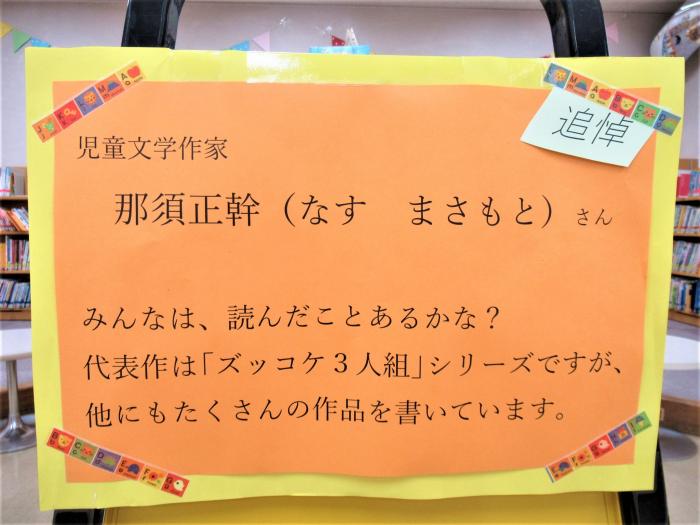 追悼
児童文学作家
那須正幹（なす　まさもと）さん
みんなは、読んだことあるかな？
代表作は「ズッコケ３人組」シリーズですが、
他にもたくさんの作品を書いています。